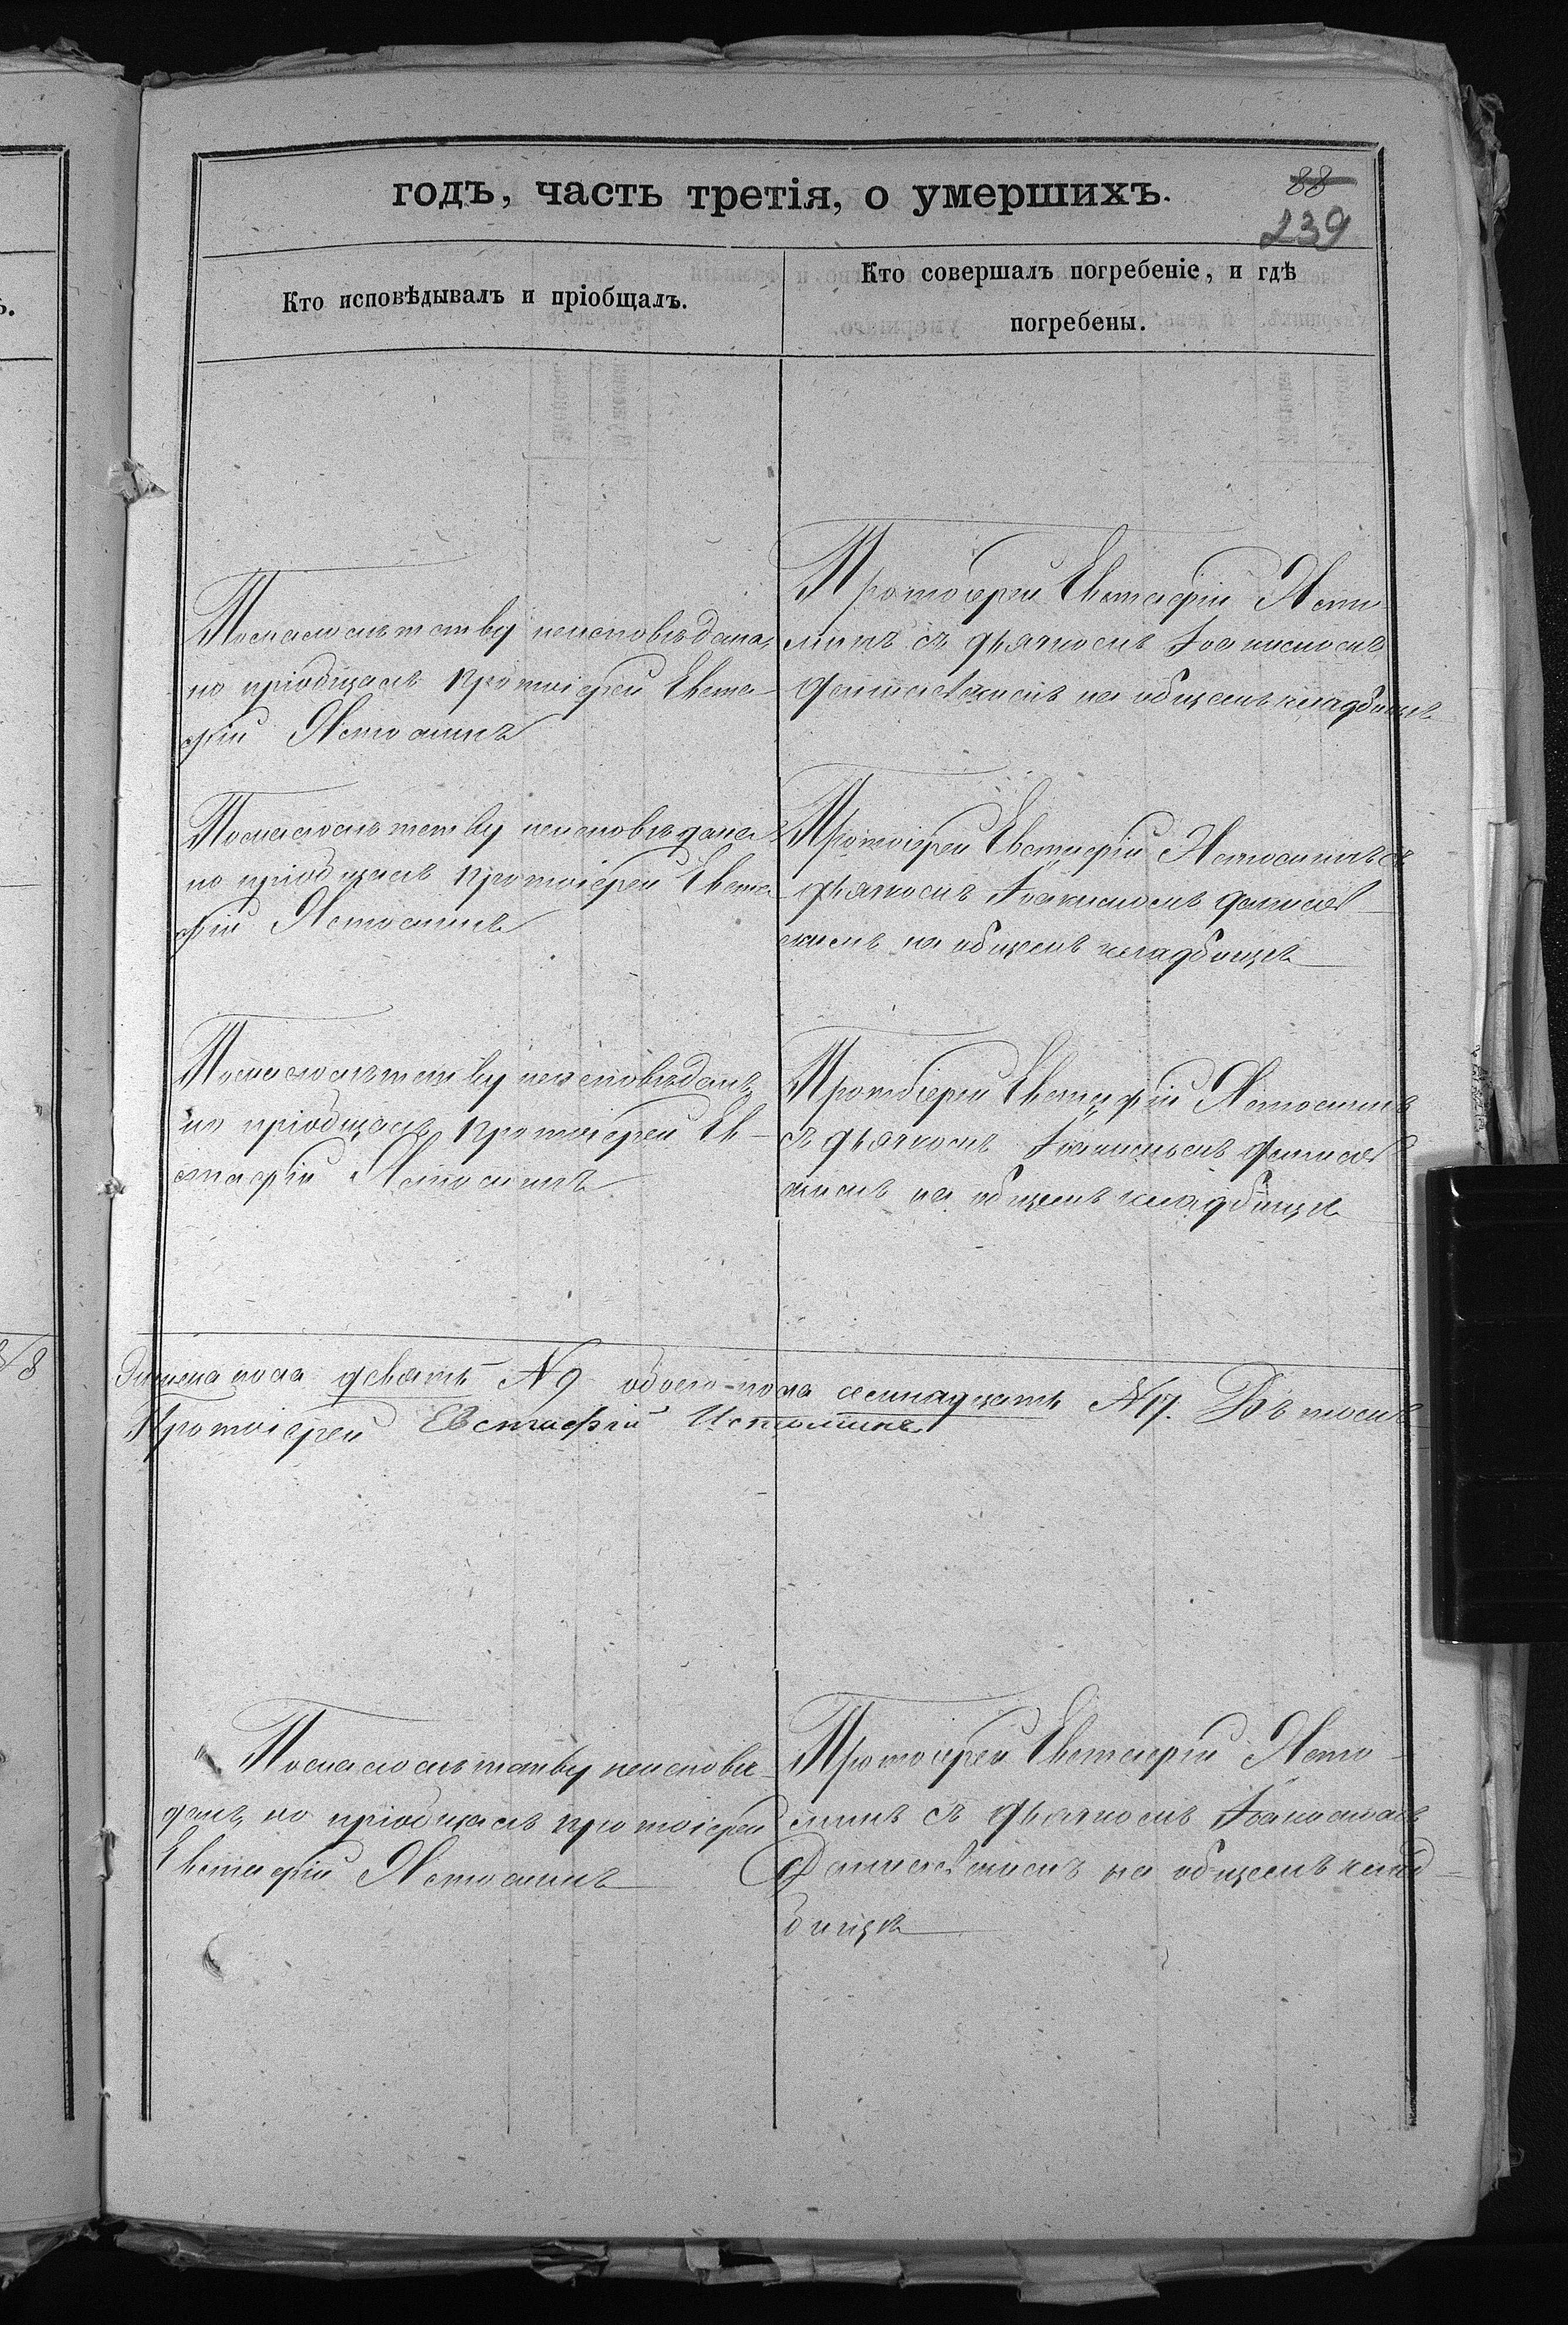 годъ, часть третія, о умершихъ.
88
239
Кто исповѣдывалъ и пріобщалъ.
Кто совершалъ погребеніе, и гдѣ
погребены.
По малолѣтству неисповѣдана,
но пріобщалъ протоіерей Евста-
фій Истоминъ
Протоіерей Евстафій Исто-
минъ съ дьячкомъ Іоанномъ
на общемъ кладбищѣ
По малолѣтству неисповѣдана
но пріобщалъ протоіерей Евста
фій Истоминъ
Протоіерей Евстафій Истоминъ съ
дьячкомъ Іоанномъ
на общемъ кладбищѣ
По малолѣтству неисповѣданъ,
но пріобщалъ протоіерей Ев-
стафій Истоминъ
Протоіерей Евстафій Истоминъ
съ дьячкомъ Іоанномъ
на общемъ кладбищѣ
пола девять N 9 обоего пола семнадцать N 17. Въ томъ
Протоіерей Евстафій Истоминъ
По малолѣтству неисповѣ-
данъ, но пріобщалъ протоіерей
Евстафій Истоминъ
Протоіерей Евстафій Исто-
минъ съ дьячкомъ Іоанномъ
на общемъ клад-
бищѣ
8